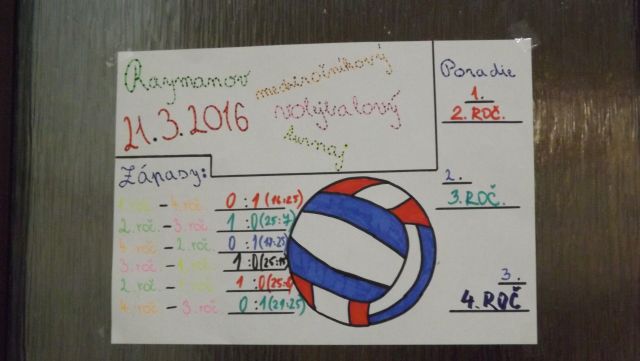 Raymanov
medziročníkový
volejbalový
turnaj
21.3.2016
Zápasy:
1. roč. - 4. roč. 0 : 1 (16:25)
2. roč. - 3. roč. 1 : 0 (25:7)
4. roč. - 2. roč. 0 : 1
3. roč. - 1. roč. 1 : 0
2. roč. - 1. roč. 1 : 0
4. roč. - 3. roč. 0 : 1 (21:25)
Poradie
1.
2. ROČ.
2.
3. ROČ.
3.
4. ROČ